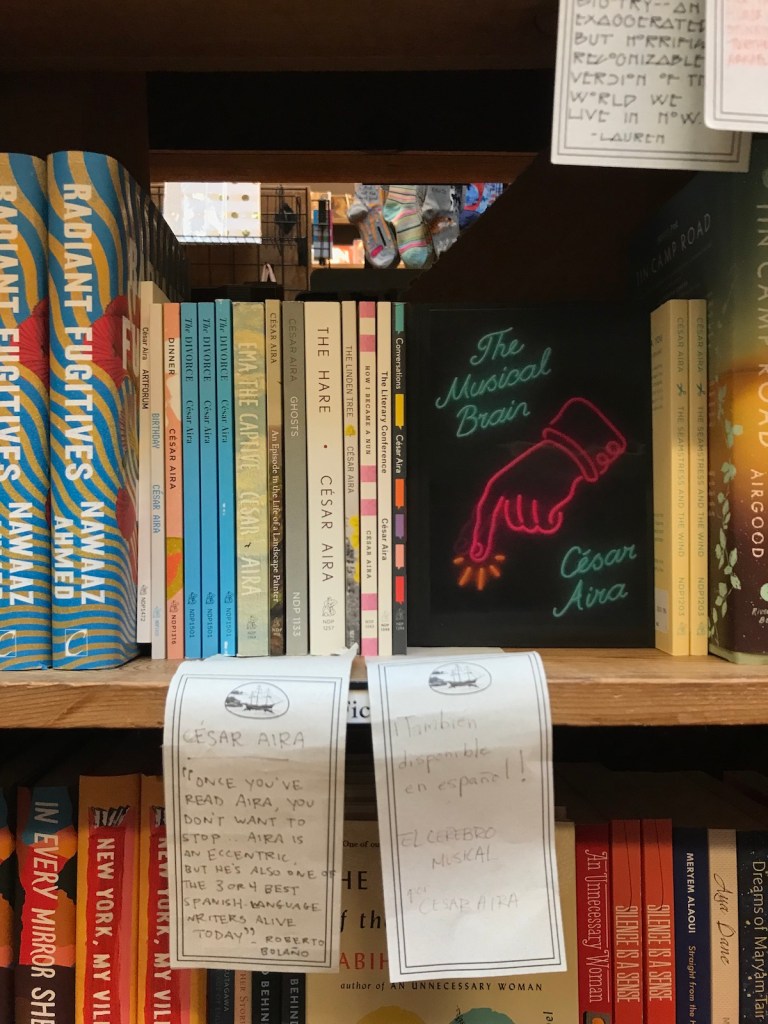 EXAGGERATED
BUT HORRIFIC
RECOGNIZABLE
VERSION OF TH
WORLD WE
LIVE IN NOW.
-LAUREN
RADIANT FUGITIVES NAWAAZ
RADIANT FUGITIVES NAWAAZ AHMED
César Aira ARTFORUM NDP1472
BIRTHDAY CÉSAR AIRA
DINNER CÉSAR AIRA NDP1316
The DIVORCE César Aira NDP1503
The DIVORCE César Aira NDP1503
The DIVORCE César Aira NDP1503
EMA, THE CAPTIVE CÉSAR AIRA
CÉSAR AIRA An Episode in the Life of a Landscape Painter
CÉSAR AIRA GHOSTS NDP 1133
THE HARE • CÉSAR AIRA
THE LINDEN TREE CÉSAR AIRA
HOW I BECAME A NUN CÉSAR AIRA
The Literary Conference César Aira
Conversations César Aira
The
Musical
Brain
César
Aira
CÉSAR AIRA THE SEAMSTRESS AND THE WIND NDP1305
CÉSAR AIRA THE SEAMSTRESS AND THE WIND NDP1305
TIN CAMP ROAD
TIN CAMP ROAD AIRGOOD
Fic
CÉSAR AIRA
"ONCE YOU'VE
READ AIRA, YOU
DON'T WANT TO
STOP. AIRA IS
AN ECCENTRIC,
BUT HE'S ALSO ONE OF
THE 3 OR 4 BEST
SPANISH-LANGUAGE
WRITERS ALIVE
TODAY" - ROBERTO
BOLAÑO
¡También
disponible
en español!
EL CEREBRO
MUSICAL
por
CÉSAR AIRA
IN EVERY MIRROR SHE
NEW YORK, MY VILL
NEW YORK, MY VILL
One of
HE
of the
ABIH
author of AN UNNECESSARY WOMAN
An Unnecessary Woman
SILENCE IS A SENSE
SILENCE IS A SENSE
MERYEM ALAOUI Straight from the H
Dreams of Maryam Tair